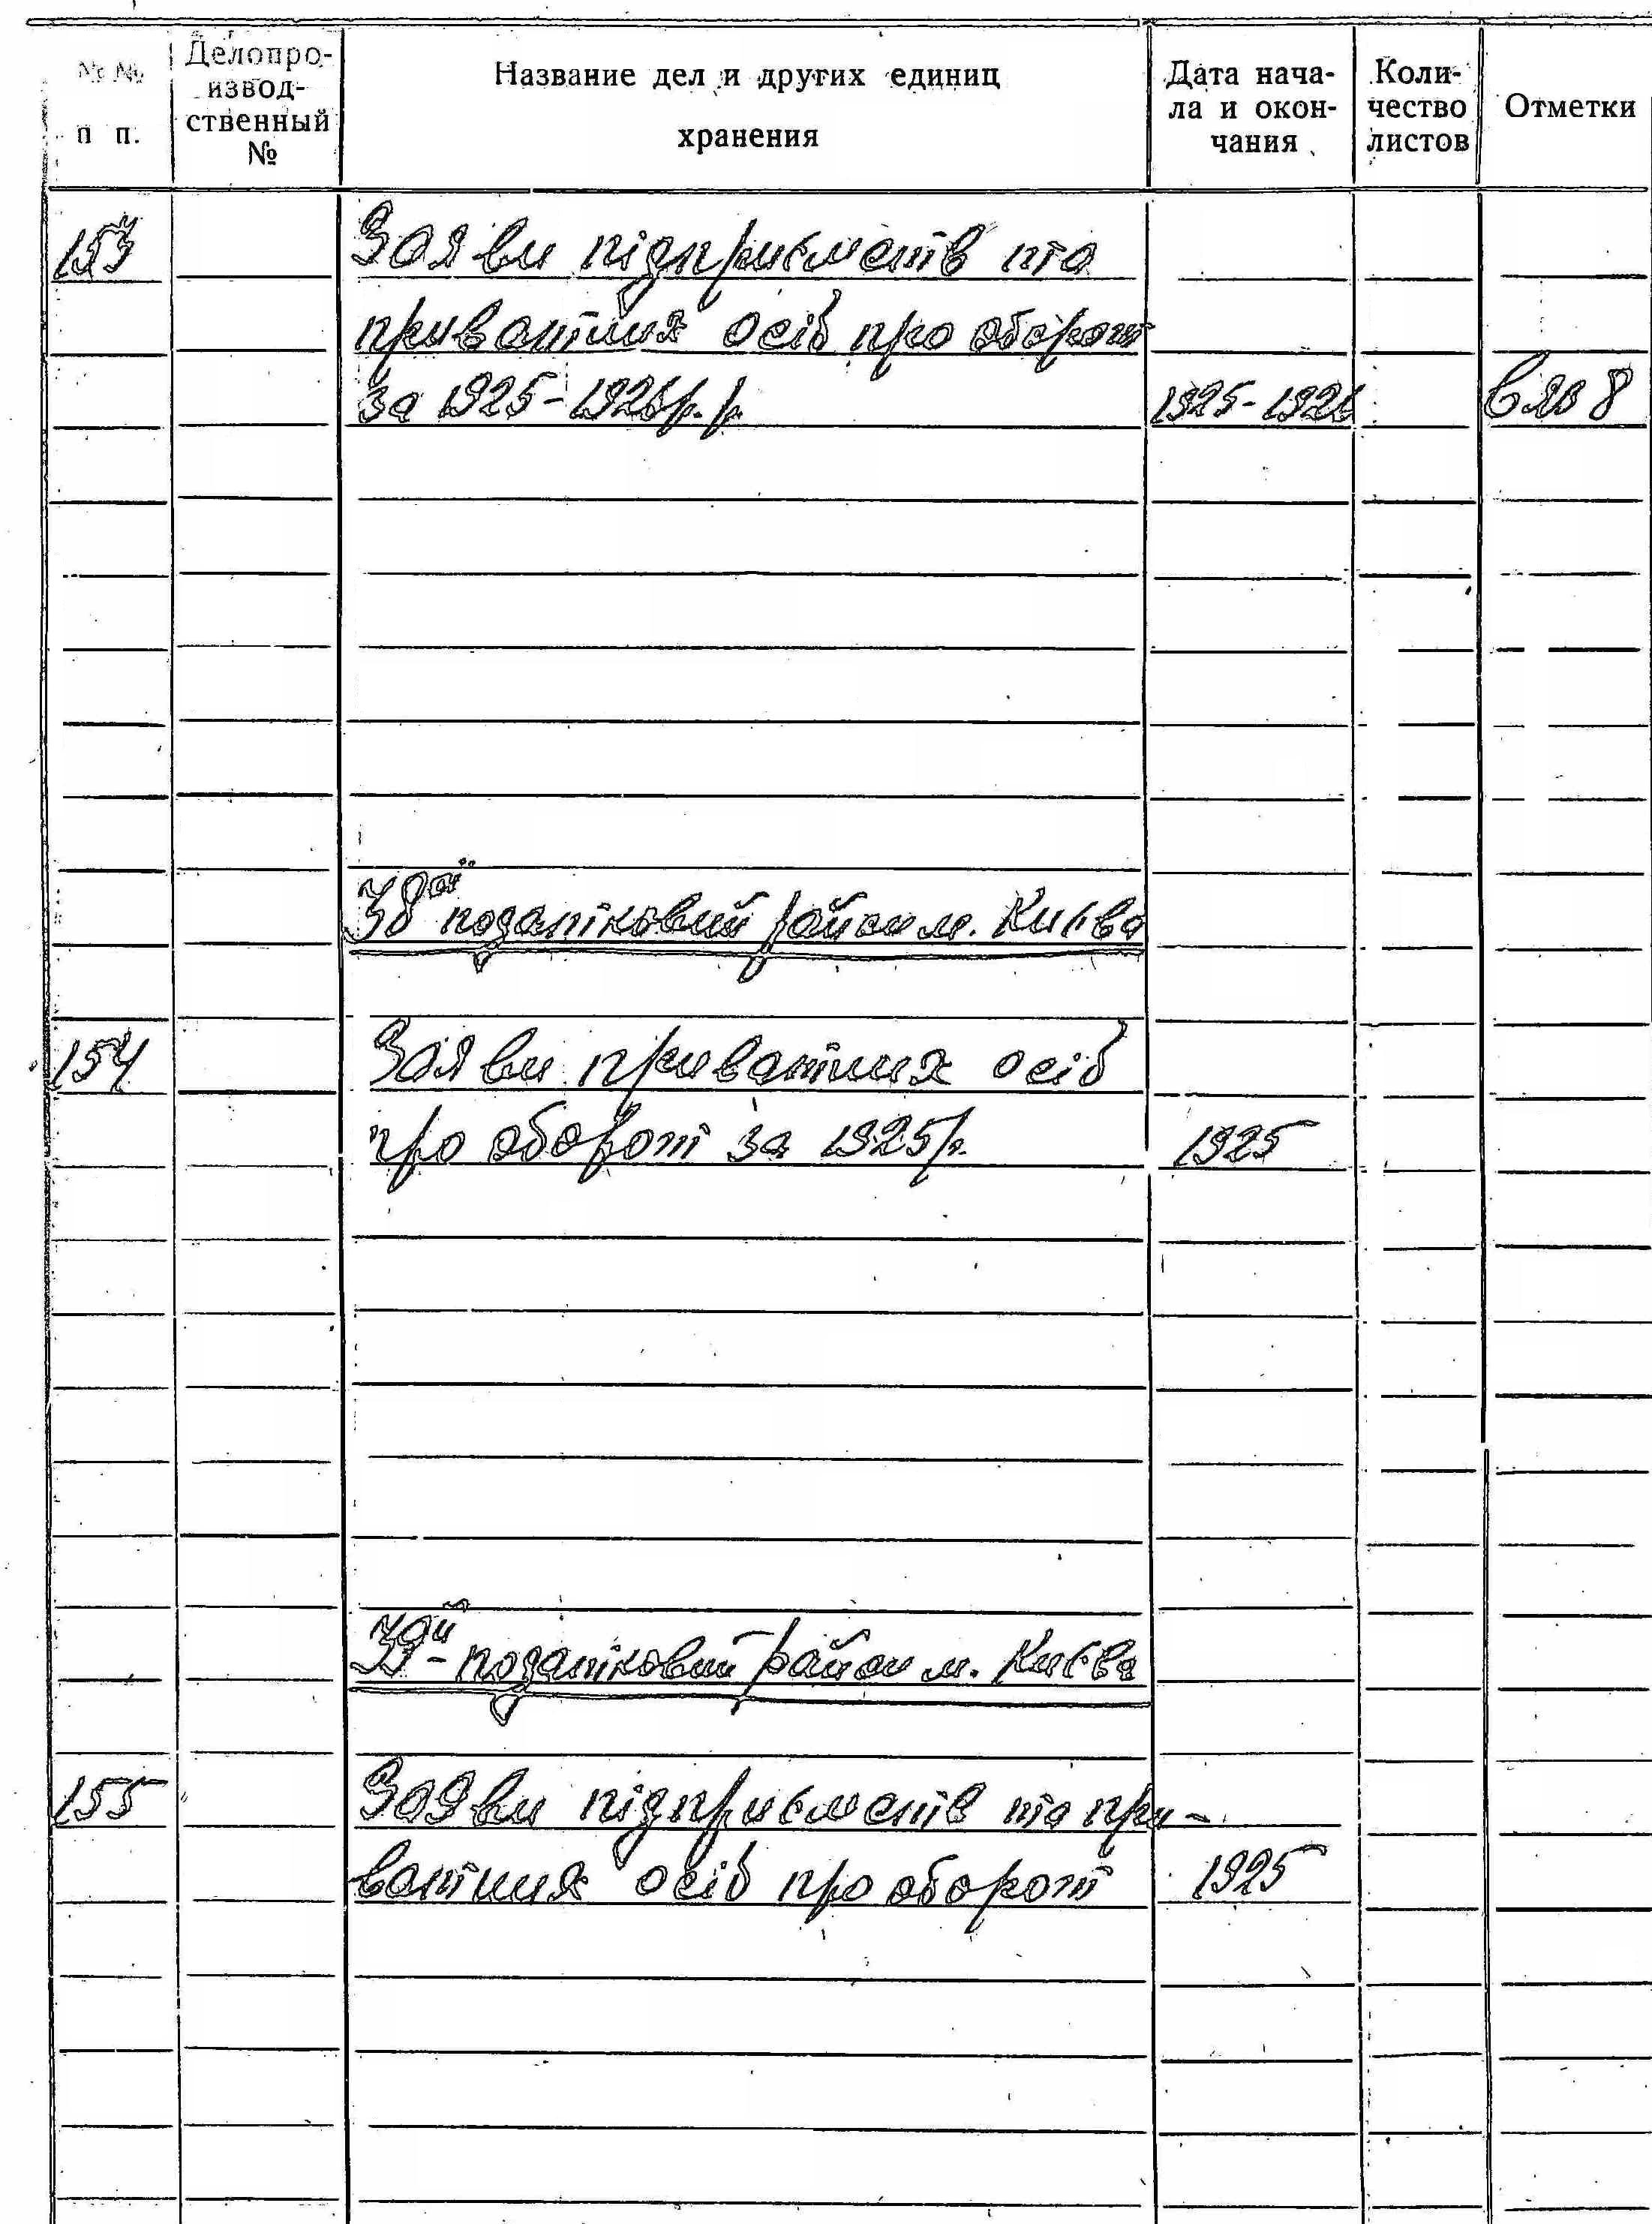 № № п п.
Делопро-
извод-
ственный
№
Название дел и других единиц
хранения
Дата нача-
ла и окон-
чания
Коли-
чество
листов
Отметки
153
Заяви підприємств та
приватних осіб про оборот
за 1925-1926р.р. 1925-1926
38й податковий район м. Києва
154 Заяви приватних осіб
про оборот за 1925р. 1925
39й - податковий район м. Києва
155 Заяви підприємств та при-
ватних осіб про оборот 1925